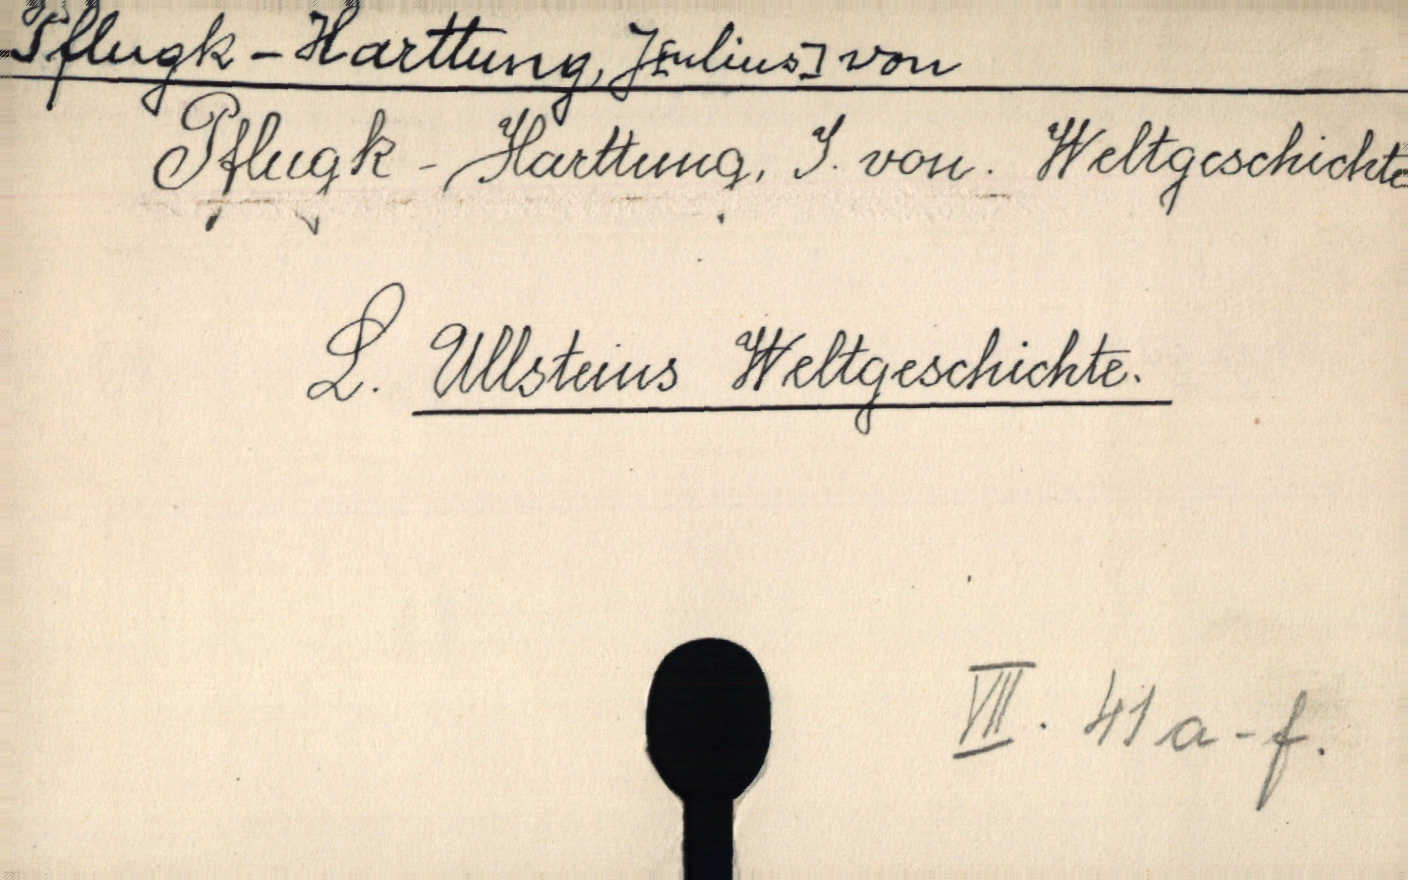 Pflugk-Harttung, J[ulius] von
Pflugk-Harttung, J. von. Weltgeschichte
S. Ullsteins Weltgeschichte.
VII. 41a-f.